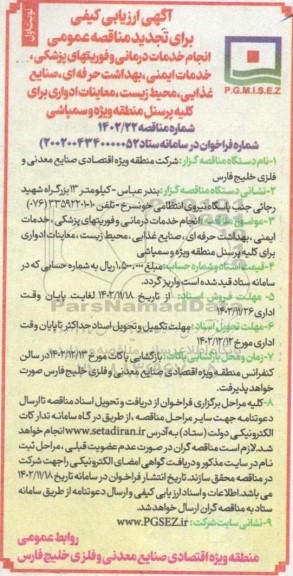 نوبت اول
آگهی ارزیابی کیفی
برای تجدید مناقصه عمومی
انجام خدمات درمانی و فوریتهای پزشکی،
خدمات ایمنی، بهداشت حرفه ای، صنایع
غذایی، محیط زیست، معاینات ادواری برای
کلیه پرسنل منطقه ویژه و سمپاشی
P.G.M.I.S.E.Z
شماره مناقصه ۱۴۰۲/۲۲
شماره فراخوان در سامانه ستاد ۲۰۰۲۰۰۴۳۴۰۰۰۰۰۵۲
۱-نام دستگاه مناقصه گزار: شرکت منطقه ویژه اقتصادی صنایع معدنی و
فلزی خلیج فارس
۲-نشانی دستگاه مناقصه گزار: بندرعباس - کیلومتر ۱۳ بزرگراه شهید
رجائی جنب پاسگاه نیروی انتظامی خونسرخ - تلفن ۳۳۵۹۲۲۰۱۰۱۰ (۰۷۶)
۳-موضوع مناقصه: انجام خدمات درمانی و فوریتهای پزشکی، خدمات
ایمنی، بهداشت حرفه ای، صنایع غذایی، محیط زیست، معاینات ادواری
برای کلیه پرسنل منطقه ویژه و سمپاشی
۴-قیمت اسناد و شماره حساب: مبلغ ۱،۵۰۰،۰۰۰ ریال به شماره حسابی که در
سامانه ستاد قید شده است واریز گردد.
۵- مهلت فروش اسناد: از تاریخ ۱۴۰۲/۱۱/۱۸ لغایت پایان وقت
اداری ۱۴۰۲/۱۱/۲۶
۶-مهلت تحویل اسناد: مهلت تکمیل و تحویل اسناد حداکثر تا پایان وقت
اداری مورخ ۱۴۰۲/۱۲/۱۲
۷-زمان و محل بازگشایی پاکات: بازگشایی پاکات مورخ ۱۴۰۲/۱۲/۱۳ در سالن
کنفرانس منطقه ویژه اقتصادی صنایع معدنی و فلزی خلیج فارس صورت
خواهد پذیرفت.
۸-کلیه مراحل برگزاری فراخوان از دریافت و تحویل اسناد مناقصه تا ارسال
دعوتنامه جهت سایر مراحل مناقصه، از طریق درگاه سامانه تدارکات
الکترونیکی دولت (ستاد) به آدرس www.setadiran.ir انجام خواهد
شد. لازم است مناقصه گران در صورت عدم عضویت قبلی، مراحل ثبت
نام در سایت مذکور و دریافت گواهی امضای الکترونیکی را جهت شرکت
در مناقصه محقق سازند. تاریخ انتشار فراخوان در سامانه تاریخ ۱۴۰۲/۱۱/۱۸
می باشد. اطلاعات و اسناد ارزیابی کیفی و ارسال دعوتنامه از طریق سامانه
ستاد به مناقصه گران ارسال خواهد شد.
۹-نشانی سایت شرکت: www.PGSEZ.ir
روابط عمومی
منطقه ویژه اقتصادی صنایع معدنی و فلزی خلیج فارس
ParsNamadData